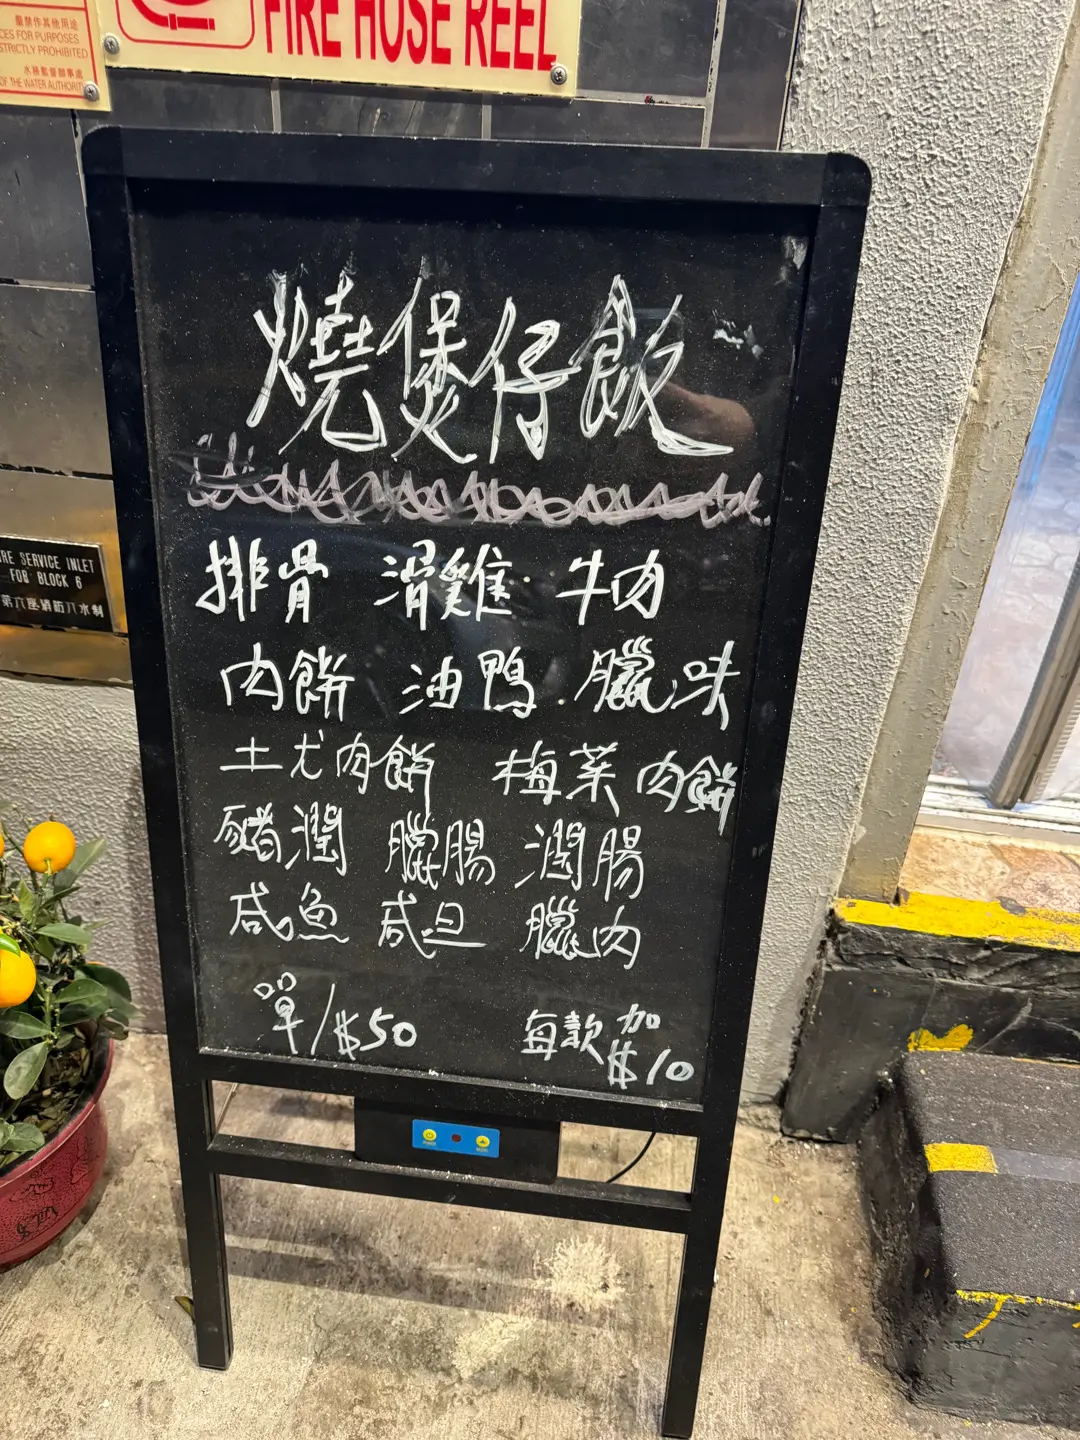 嚴禁作其他用途
CES FOR PURPOSES
STRICTLY PROHIBITED
水務監督辦事處
OF THE WATER AUTHORITY
FIRE HOSE REEL
燒煲仔飯
排骨 滑雞 牛肉
肉餅 油鴨 臘味
土尤肉餅 梅菜肉餅
豬潤 臘腸 潤腸
咸魚 咸旦 臘肉
單/$50 每款加$10
IRE SERVICE INLET
FOR BLOCK 6
第六座消防入水制